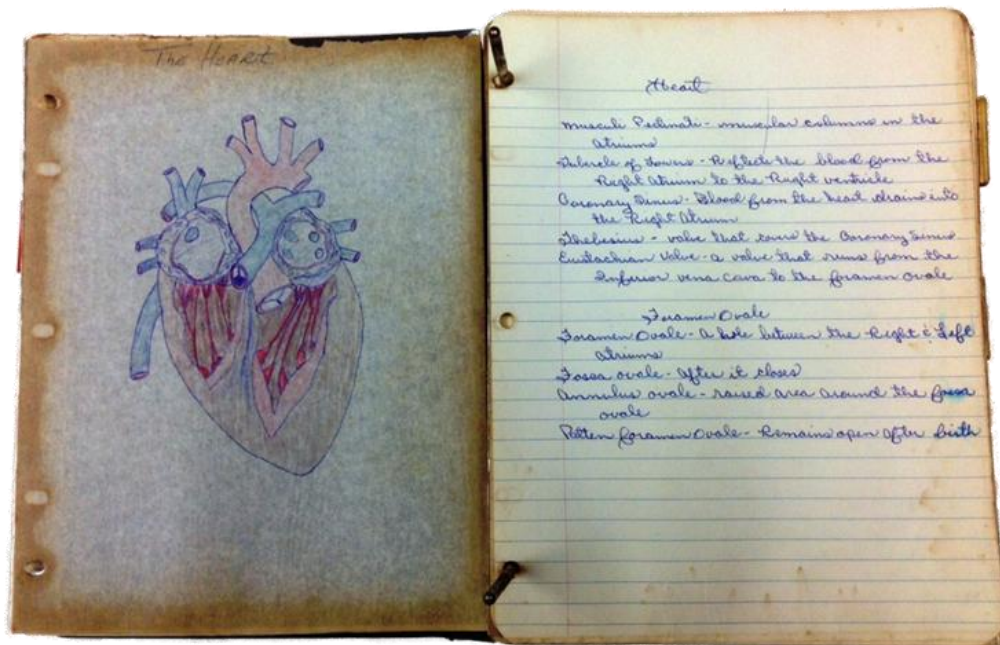 The Heart
Heart
Musculi Pectinati - muscular columns in the
Atriums
Tubercle of Lowers - Reflects the blood from the
Right Atrium to the Right ventricle
Coronary Sinus - Blood from the heart drains into
the Right Atrium
Thebesius - valve that covers the Coronary Sinus
Eustachian Valve - a valve that runs from the
Inferior vena cava to the foramen ovale
Foramen Ovale
Foramen Ovale - A hole between the Right & Left
Atriums
Fossa ovale - After it closes
Annulus ovale - raised area around the fossa
ovale
Patten foramen Ovale - Remains open after birth